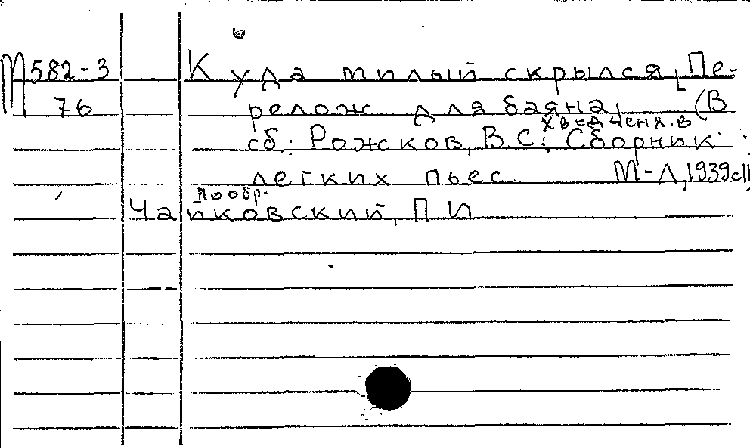 М582-3 Куда милый скрылся, Пе-
76 релож для баяна, (В
сб.: Рожков, В.С.: Сборник
легких пьес М-Л, 1939 с11
по обр.
Чайковский, П И